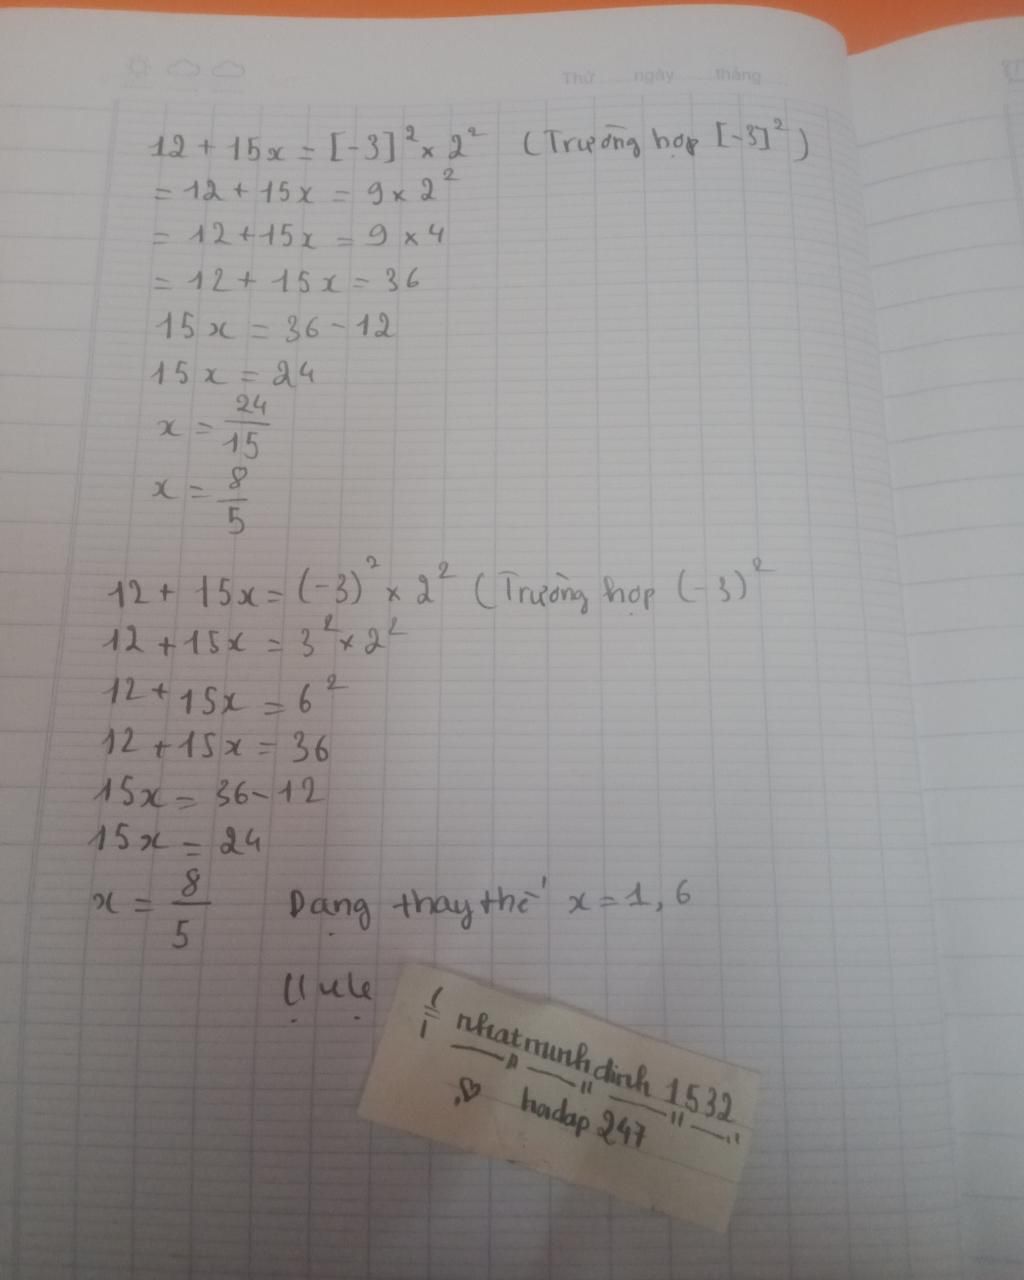 Thứ ngày tháng
12 + 15x = [-3]² × 2² (Trường hợp [-3]²)
= 12 + 15x = 9 × 2²
= 12 + 15x = 9 × 4
= 12 + 15x = 36
15x = 36 - 12
15x = 24
x = 24/15
x = 8/5
12 + 15x = (-3)² × 2² (Trường hợp (-3)²
12 + 15x = 3² × 2²
12 + 15x = 6²
12 + 15x = 36
15x = 36 - 12
15x = 24
x = 8/5 Dạng thay thế x = 1,6
nhatminhdinh 1532
hoidap 247